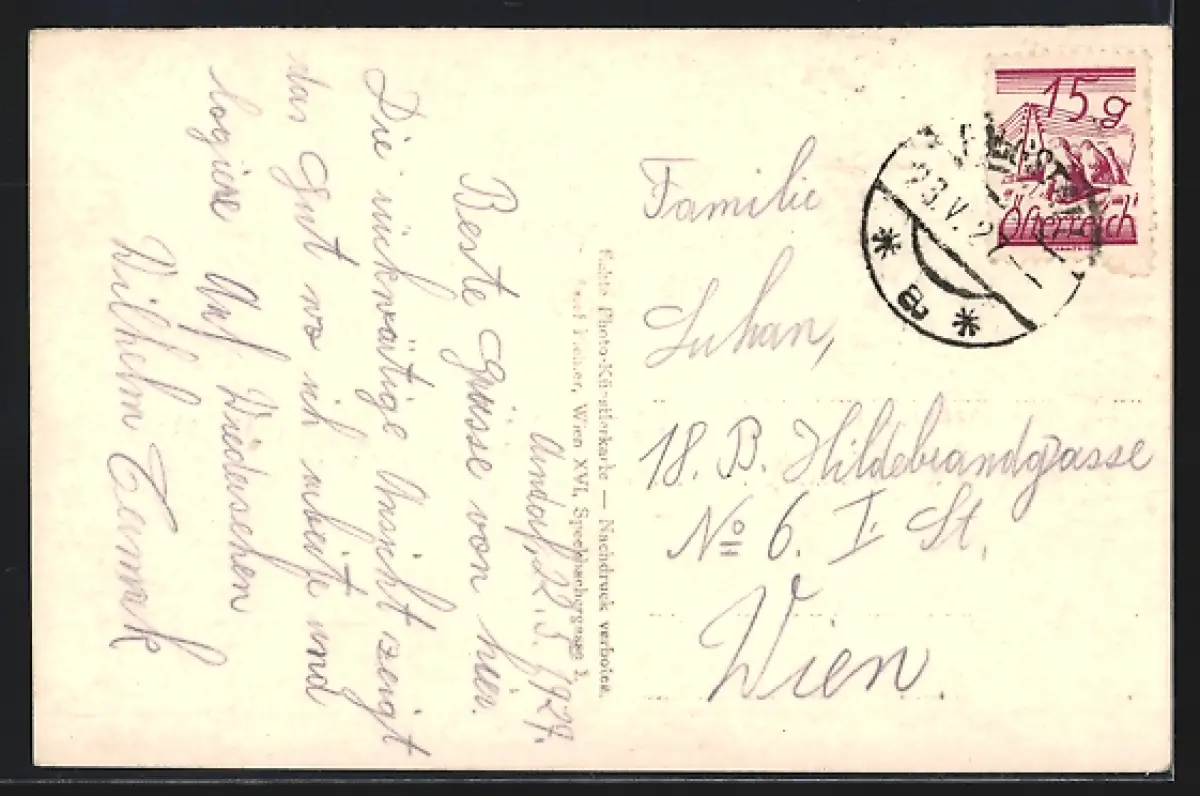 Andorf, 22.5.1927.
Beste grüsse von hier.
Die rückwärtige Ansicht zeigt
das gut wo ich arbeite und
logiere Auf Wiedersehen
Wilhelm
Echte Photo-Künstlerkarte — Nachdruck verboten.
Wien XVI, Speckbachergasse
15 g
Österreich
Familie
18. B. Hildebrandgasse
No 6. I. St.
Wien.